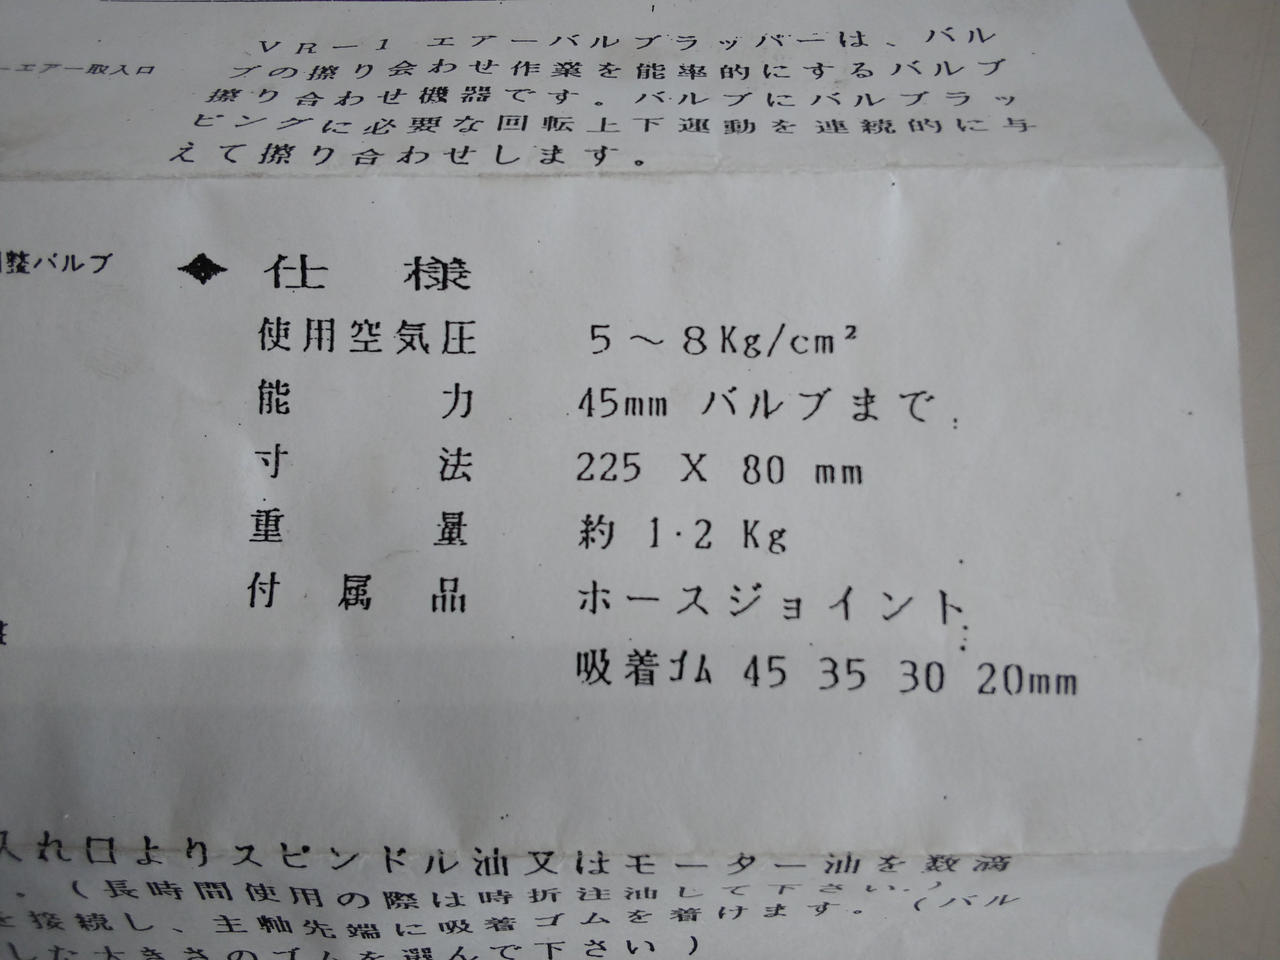 VR-1 エアーバルブラッパーは、バル
ーエアー取入口
ブの擦り会わせ作業を能率的にするバルブ
擦り合わせ機器です。バルブにバルブラッ
ピングに必要な回転上下運動を連続的に与
えて擦り合わせします。
整バルブ
◆仕 様
使用空気圧 5～8Kg/cm²
能 力 45mm バルブまで
寸 法 225 X 80 mm
重 量 約 1·2 Kg
付 属 品 ホースジョイント
吸着ゴム 45 35 30 20mm
入れ口よりスピンドル油又はモーター油を数滴
。(長時間使用の際は時折注油して下さい。)
を接続し、主軸先端に吸着ゴムを着けます。(バル
した大きさのゴムを選んで下さい)